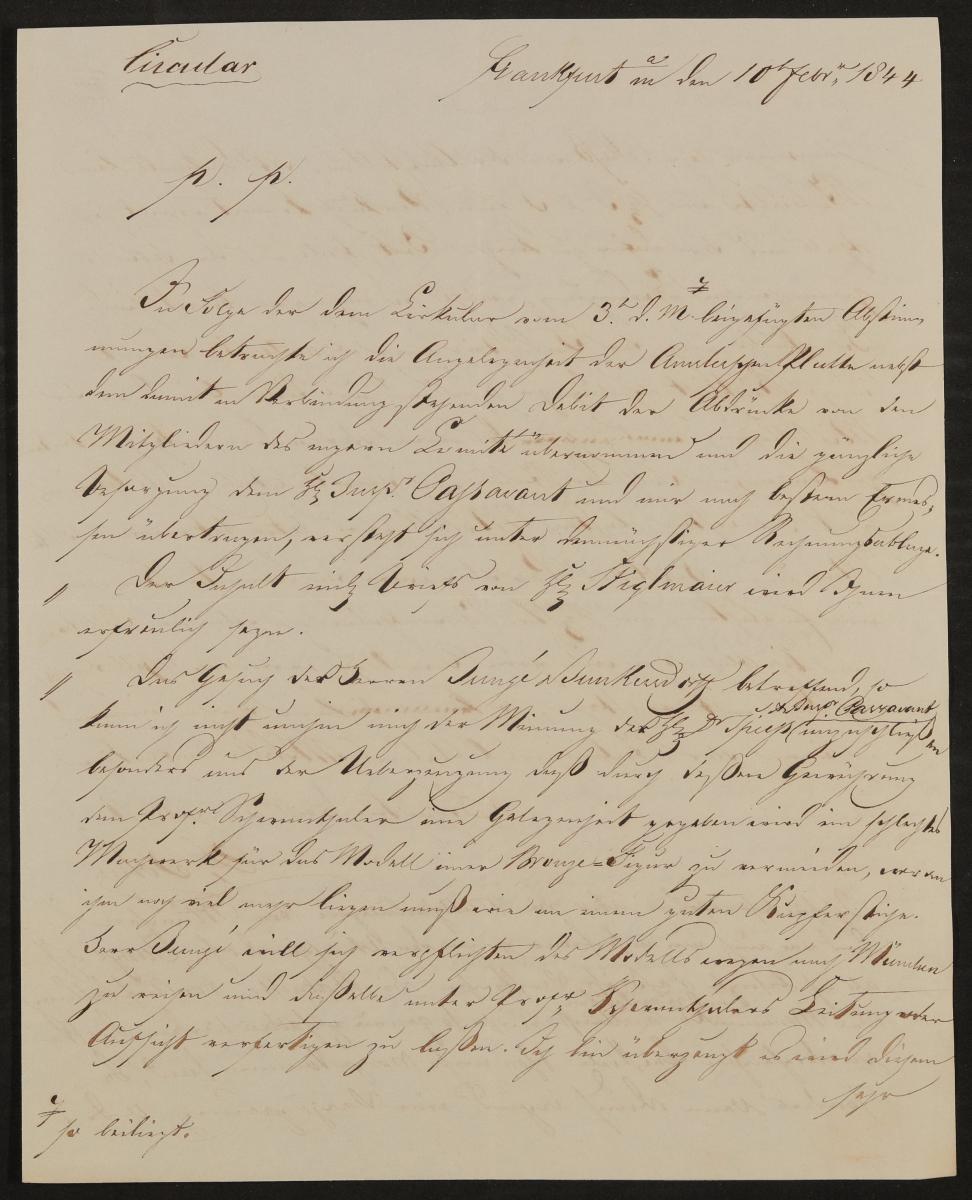 Circular
Frankfurt a/m den 10t Febrr 1844
p. p.
In Folge der dem Cirkular vom 3t d. M. beigefügten Abstim-
mungen betrachte ich die Angelegenheit der Amslerschen Platte nebst
dem damit in Verbindung stehenden Debit der Abdrücke von den
Mitgliedern des engern Comité übernommen und die gänzliche
Besorgung dem Hr Insp. Passavant und mir nach bestem Ermes-
sen übertragen, versteht sich unter demnächstiger Rechnungsablage.
// Der Inhalt eines Briefs von Hr Stiglmaier wird Ihnen
erfreulich seyn.
// Das Gesuch der Herren Jungé & Bunkendorff betreffend, so
kann ich nicht umhin mich der Meinung des Hr Dr Spiess & Insp. Passavant anzuschließen
besonders aus der Ueberzeugung daß durch dessen Gewährung
dem Profr Schwanthaler eine Gelegenheit gegeben wird ein schlechtes
Machwerk für das Modell einer Bronze-Figur zu vermeiden, woran
ihm noch viel mehr liegen muß wie an einem guten Kupferstiche.
Herr Jungé will sich verpflichten des Modells wegen nach München
zu reisen und dasselbe unter Profr Schwanthalers Leitung oder
Aufsicht verfertigen zu lassen. Ich bin überzeugt es wird diesem
sehr
so beiliegt.